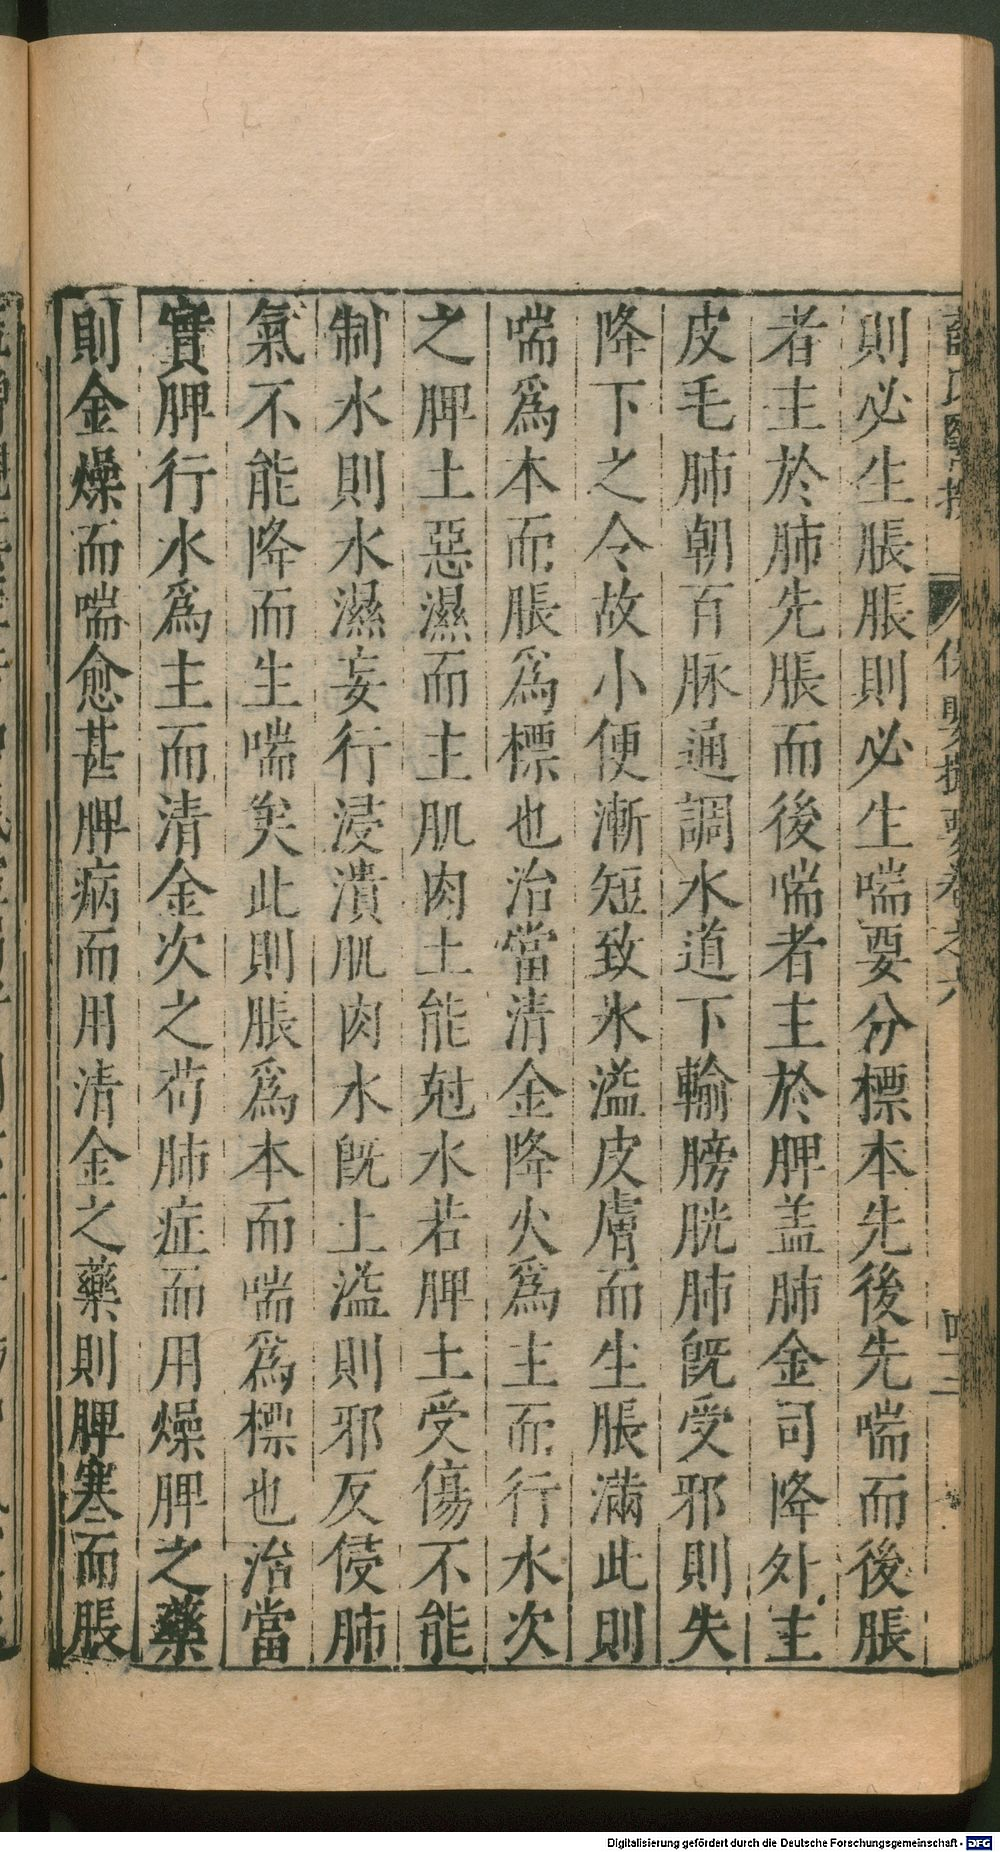 則必生脹脹則必生喘要分標本先後先喘而後脹
者主於肺先脹而後喘者主於脾盖肺金司降外主
皮毛肺朝百脉通調水道下輸膀胱肺旣受邪則失
降下之令故小便漸短致氷溢皮膚而生脹滿此則
喘爲本而脹爲標也治當清金降火爲主而行水次
之脾土惡濕而主肌肉土能尅水若脾土受傷不能
制水則水濕妄行浸潰肌肉水旣上溢則邪反侵肺
氣不能降而生喘矣此則脹爲本而喘爲標也治當
實脾行水爲主而清金次之苟肺症而用燥脾之藥
則金燥而喘愈甚脾病而用清金之藥則脾寒而脹
保嬰撮要卷之六
Digitalisierung gefördert durch die Deutsche Forschungsgemeinschaft - DFG